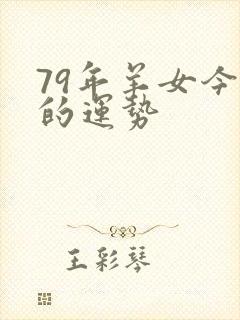 79年羊女今
的運势
王彩琴